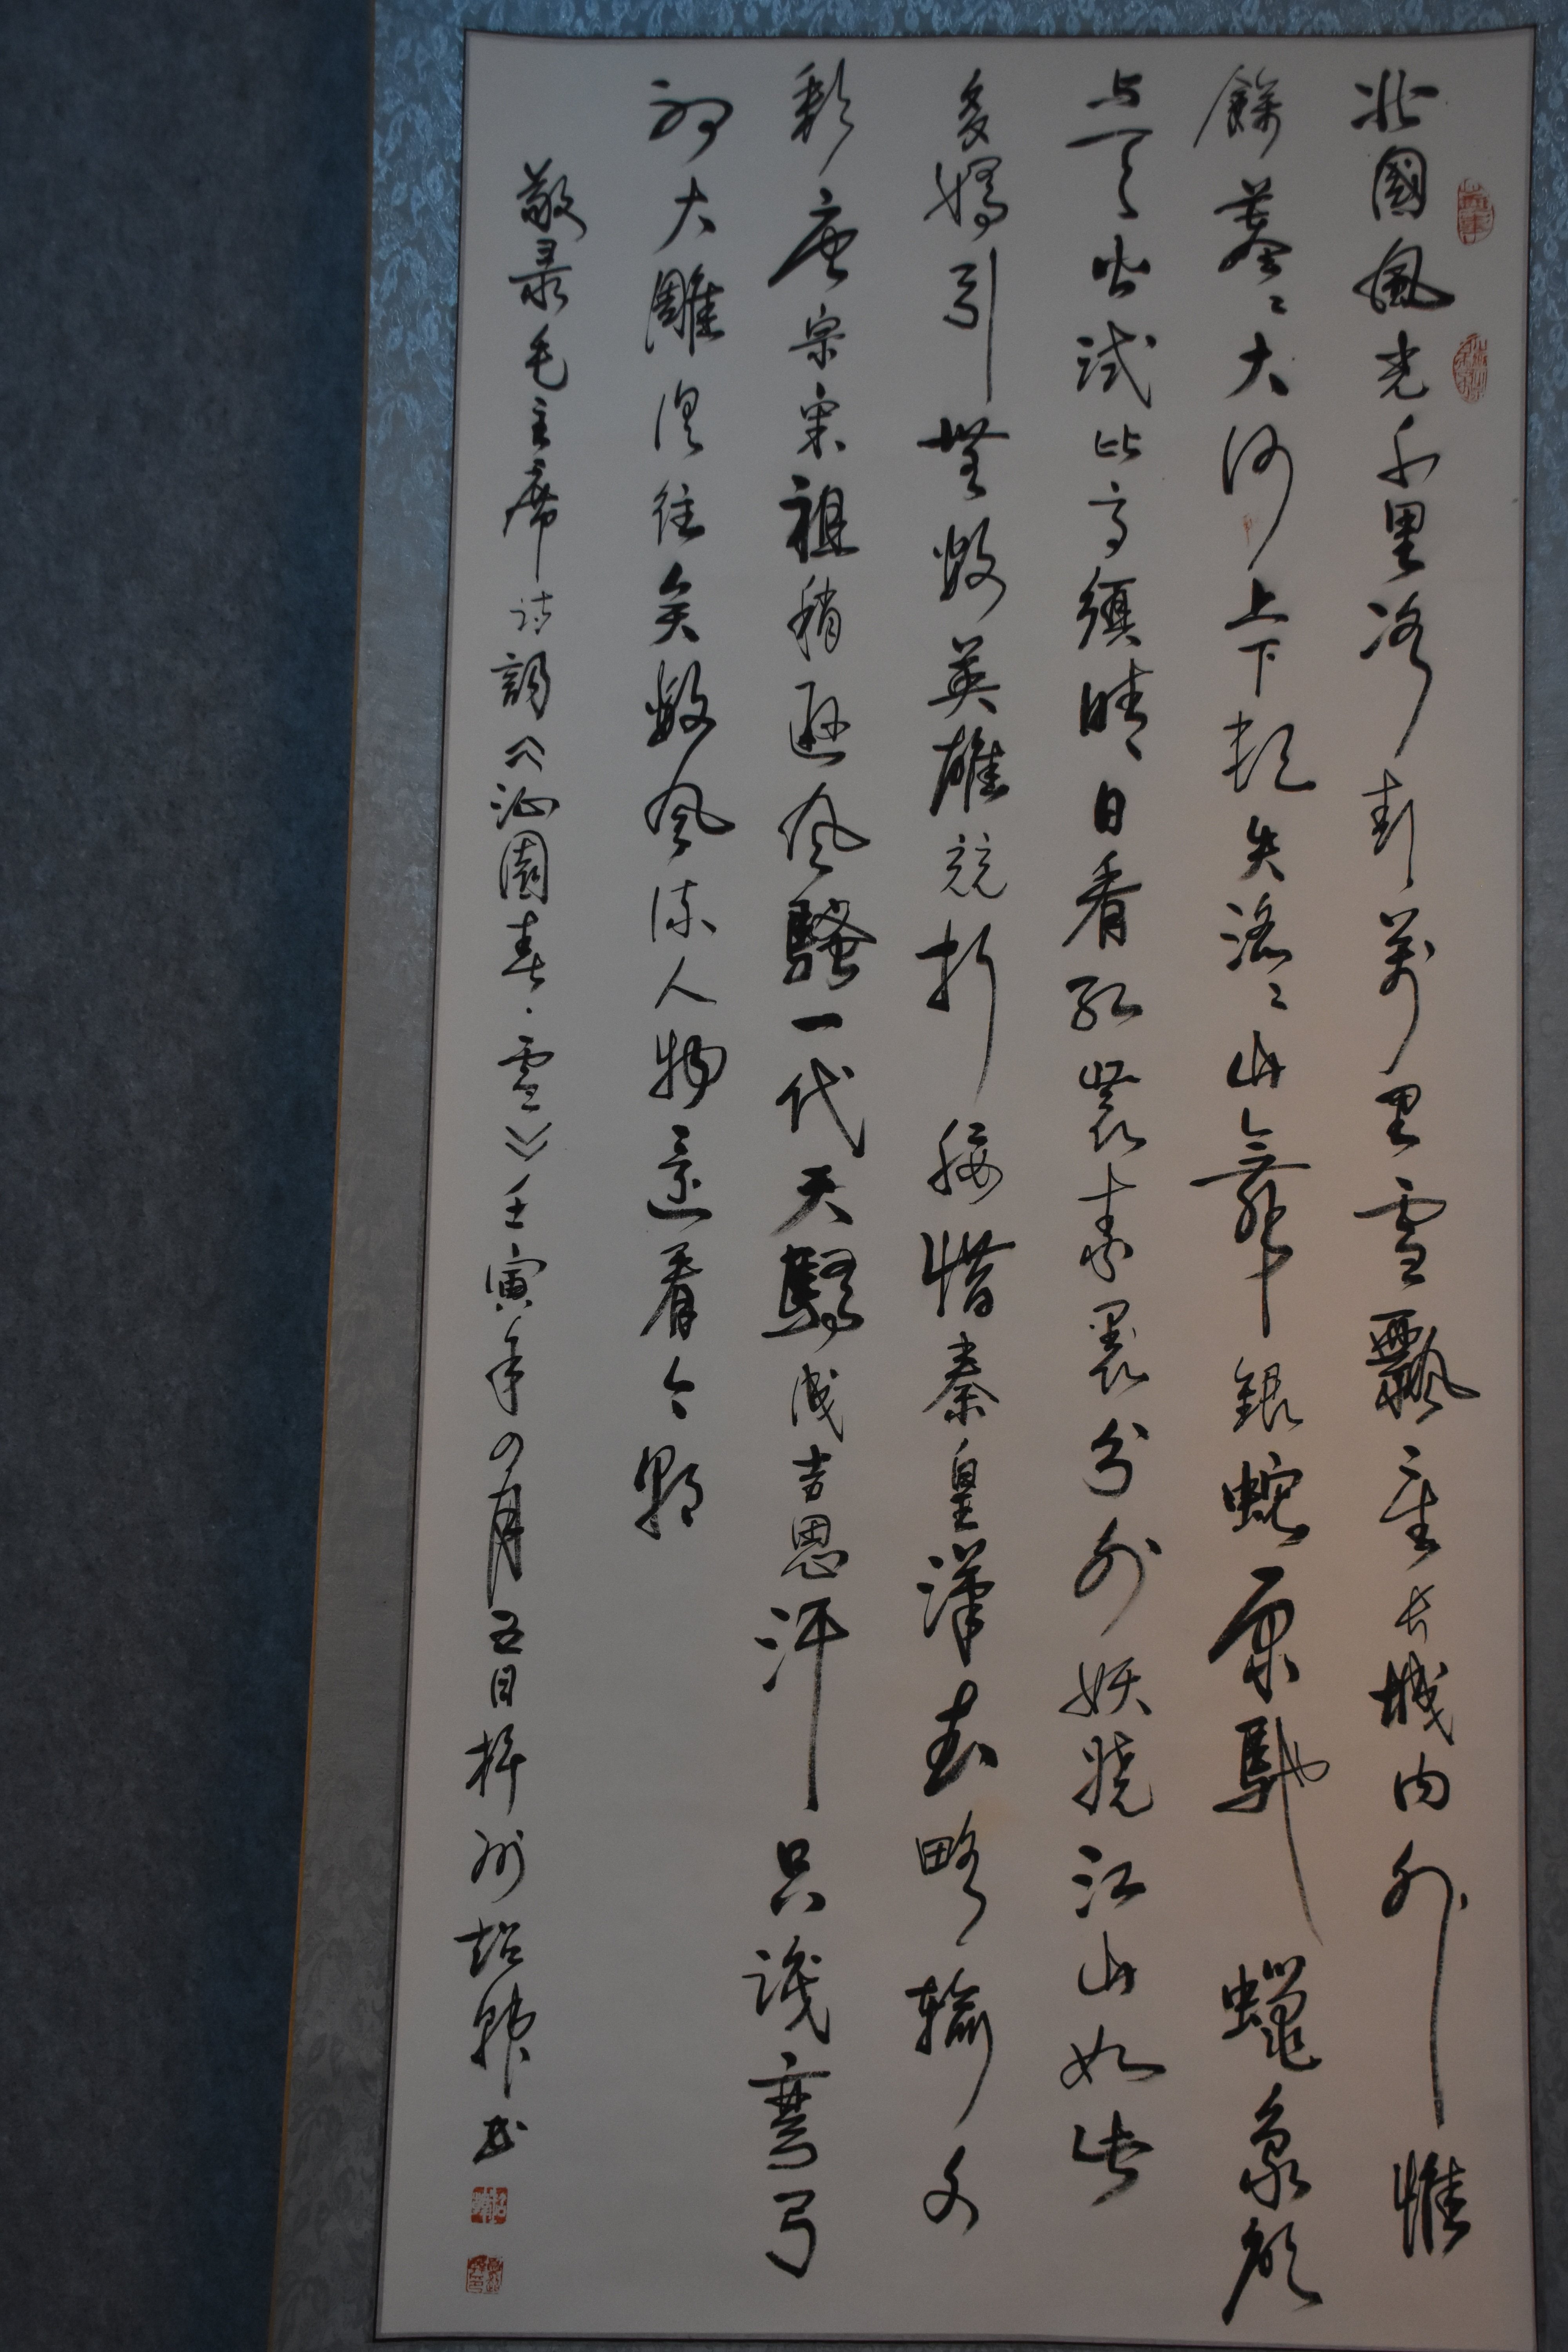 北國風光千里冰封萬里雪飄望長城内外惟
餘莽〻大河上下頓失滔〻山舞銀蛇原馳蠟象欲
与天公試比高須晴日看紅裝素裹分外妖嬈江山如此
多嬌引無數英雄競折腰惜秦皇漢武略輸文
彩唐宗宋祖稍遜風騷一代天驕成吉思汗只識彎弓
射大雕俱往矣數風流人物還看今朝
敬录毛主席诗詞《沁園春·雪》壬寅年四月五日梓州书